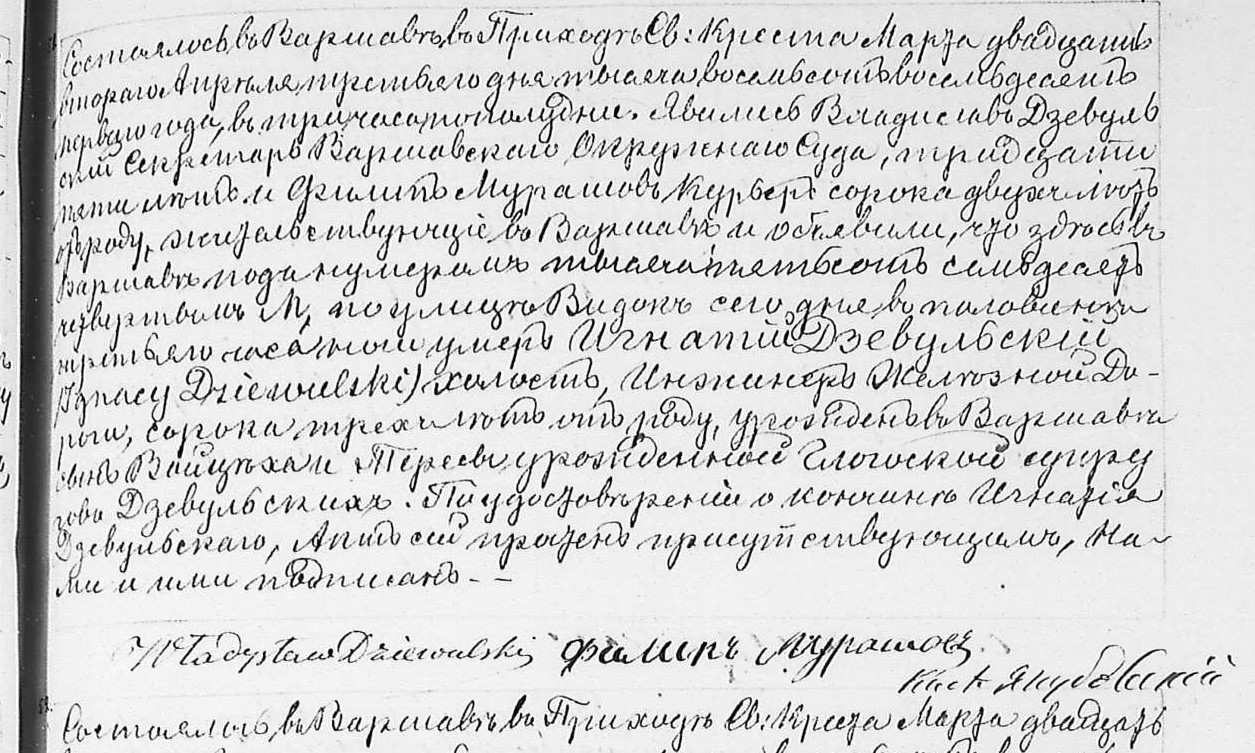 Состоялось въ Варшавѣ, въ Приходѣ Св: Креста Марта двадцать
втораго Апрѣля третьяго дня тысяча восемьсотъ восемьдесятъ
перваго года, въ три часа пополудни. Явились Владиславъ Дзевуль
скій Секретарь Варшавскаго Окружнаго Суда, тридцати
пяти лѣтъ и Филипъ Мурашовъ Курьеръ сорока двухъ лѣтъ
отъ роду, жительствующіе въ Варшавѣ и объявили, что здѣсь въ
Варшавѣ подъ нумеромъ тысяча пятьсотъ семьдесятъ
четвертымъ М, по улицѣ Видокъ сего дня въ половинѣ
третьяго часа ночи умеръ Игнатій Дзевульскій
(Ignacy Dziewulski) холостъ, Инженеръ Желѣзной До-
роги, сорока трехъ лѣтъ отъ роду, урожденъ въ Варшавѣ
сынъ Войцѣха и Тересы урожденной Глогоской супру
говъ Дзевульскихъ. По удостовѣреніи о кончинѣ Игнатія
Дзевульскаго, Актъ сей прочтенъ присутствующимъ, На-
ми и ими подписанъ. -
Władysław Dziewulski Филипъ Мурашовъ
Кс. Якубовскій
Состоялось, въ Варшавѣ въ Приходѣ Св: Креста Марта двадцать